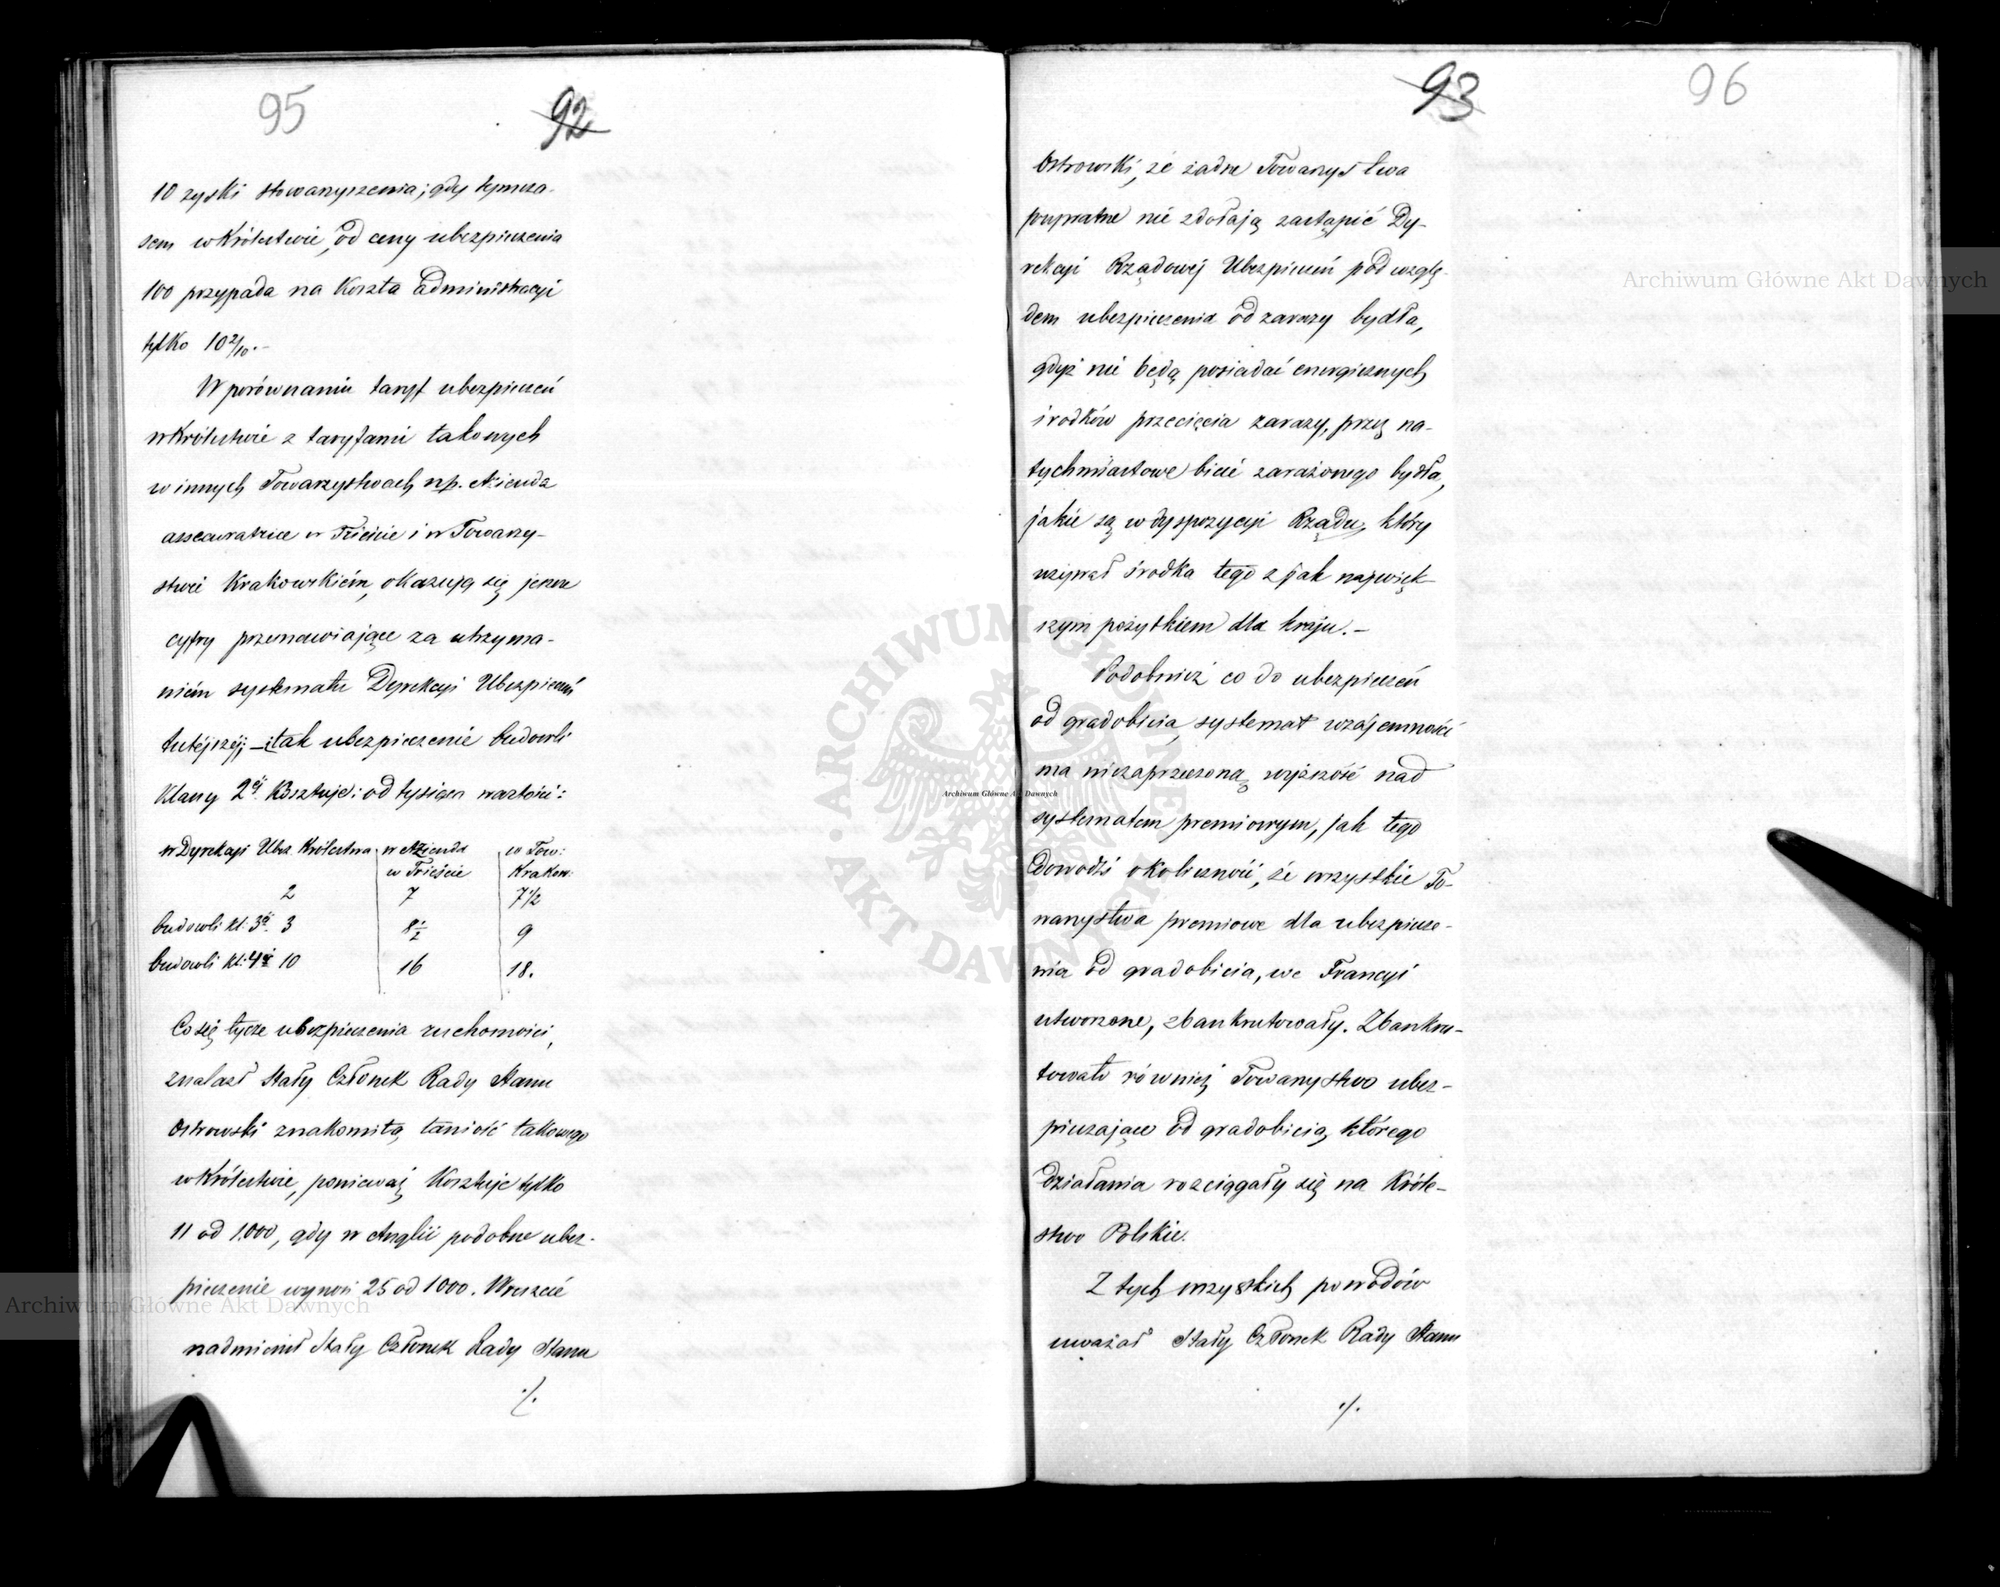 95
92
10 zyski stowarzyszenia; gdy tymcza-
sem w Królestwie, od ceny ubezpieczenia
100 przypada na Koszta administracyi
tylko 10 2/10. –
W porównaniu taryf ubezpieczeń
w Królestwie z taryfami takowych
w innych Towarzystwach np. Azienda
assecuratrice w Trieście i w Towarzy-
stwie Krakowskiém, okazują się jeszcze
cyfry przemawiające za utrzyma-
niém systematu Dyrekcyi Ubezpieczeń
tutéjszéj; – i tak ubezpieczenie budowli
Klassy 2éj. Kosztuje: od tysiąca wartości:
w Dyrekcyi Ubez. Królestwa w Azienda w Tow:
w Trieście Krakow:
2 7 7 1/2
budowli kl: 3éj. 3 8 1/2 9
budowli kl: 4éj 10 16 18.
Co się tycze ubezpieczenia ruchomości,
znalazł Stały Członek Rady Stanu
Ostrowski znakomitą taniość takowego
w Królestwie, ponieważ Kosztuje tylko
11 od 1.000, gdy w Anglii podobne ubez-
pieczenie wynosi 25 od 1000. Wreszcie
nadmienił Stały Członek Rady Stanu
./.
93
96
Ostrowski, że żadne Towarzystwa
prywatne nie zdołają zastąpić Dy-
rekcyi Rządowéj Ubezpieczeń pod wzglę-
dem ubezpieczenia od zarazy bydła,
gdyż nie będą posiadać energicznych
środków przecięcia zarazy, przez na-
tychmiastowe bicie zarażonego bydła,
jakie są w dyspozycyi Rządu, który
używał środka tego z jak najwięk-
szym pożytkiem dla kraju. –
Podobnież co do ubezpieczeń
od gradobicia, systemat wzajemności
ma niezaprzeczoną wyższość nad
systematem premiowym, jak tego
dowodzi okoliczność, że wszystkie To-
warzystwa premiowe dla ubezpiecze-
nia od gradobicia, we Francyi
utworzone, zbankrutowały. Zbankru-
towało również Towarzystwo ubez-
pieczające od gradobicia, którego
działania rozciągały się na Króle-
stwo Polskie.
Z tych wszystkich powodów
uważał Stały Członek Rady Stanu
./.
Archiwum Główne Akt Dawnych
Archiwum Główne Akt Dawnych
Archiwum Główne Akt Dawnych
ARCHIWUM GŁÓWNE AKT DAWNYCH